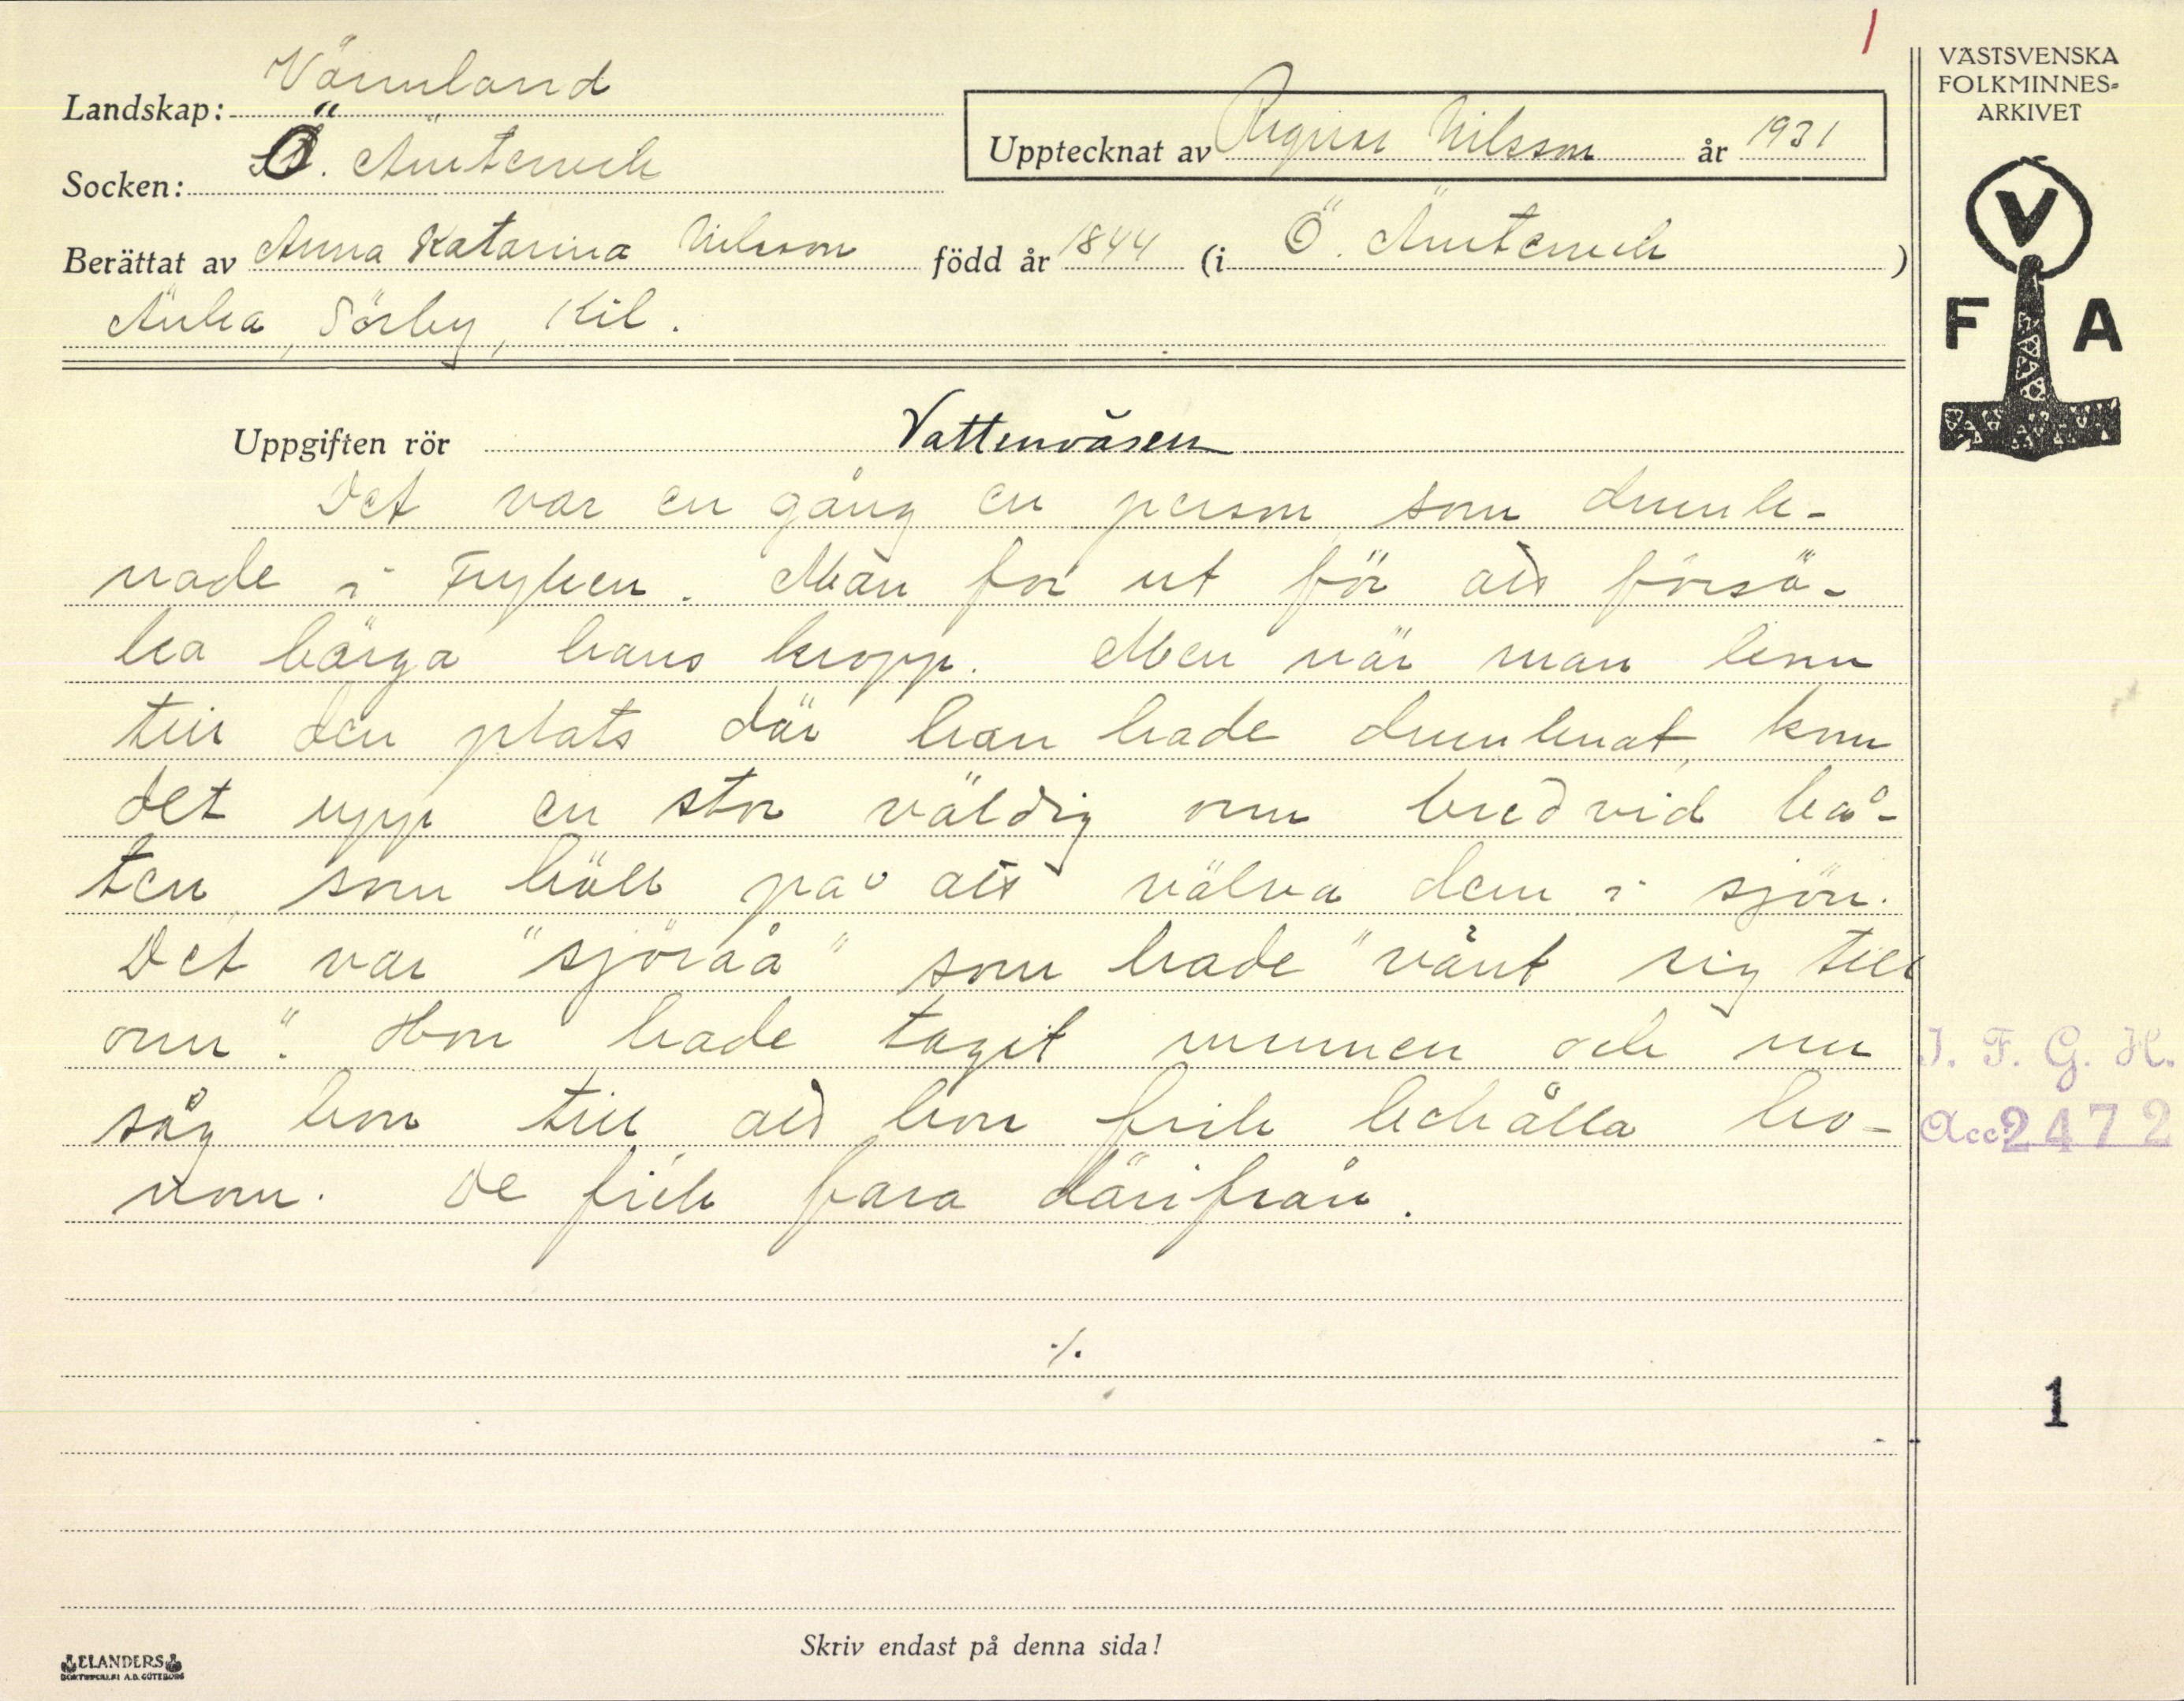 1
VÄSTSVENSKA
FOLKMINNES-
ARKIVET
Landskap: Värmland
Socken: Ö. Ämtervik
Upptecknat av Ragnar Nilsson år 1931
Berättat av Anna Katarina Nilsson född år 1844 (i Ö. Ämtervik)
Änka, Sörby, Kil.
V
F A
Uppgiften rör Vattenväsen
Det var en gång en person, som drunk-
nade i Fryken. Man for ut för att försö-
ka bärga hans kropp. Men när man kom
till den plats där han hade drunknat, kom
det upp en stor väldig orm bredvid bå-
ten, som höll på att välva dem i sjön.
Det var "sjöråa" som hade "vänt sig till
orm". Hon hade tagit mannen och nu
såg hon till, att hon fick behålla ho-
nom. De fick fara därifrån.
./.
I. F. G. H.
Acc 2472
1
Skriv endast på denna sida!
ELANDERS
BOKTRYCKERI A.B. GÖTEBORG